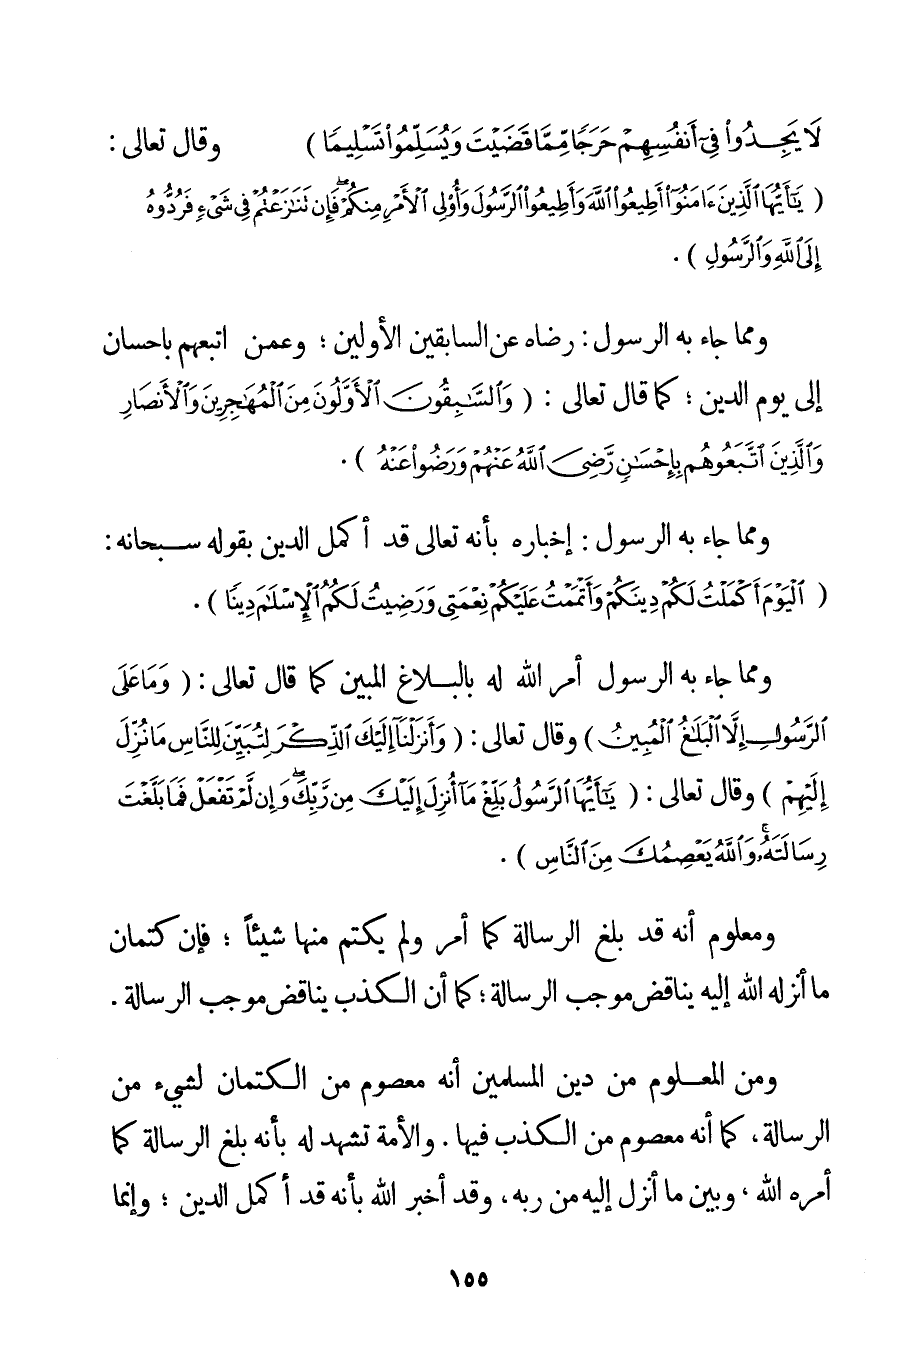 لَا يَجِدُوا۟ فِىٓ أَنفُسِهِمْ حَرَجًا مِّمَّا قَضَيْتَ وَيُسَلِّمُوا۟ تَسْلِيمًا ) وقال تعالى :
( يَٰٓأَيُّهَا ٱلَّذِينَ ءَامَنُوٓا۟ أَطِيعُوا۟ ٱللَّهَ وَأَطِيعُوا۟ ٱلرَّسُولَ وَأُو۟لِى ٱلْأَمْرِ مِنكُمْ ۖ فَإِن تَنَٰزَعْتُمْ فِى شَىْءٍ فَرُدُّوهُ
إِلَى ٱللَّهِ وَٱلرَّسُولِ ) .
ومما جاء به الرسول : رضاه عن السابقين الأولين ؛ وعمن اتبعهم بإحسان
إلى يوم الدين ؛ كما قال تعالى : ( وَٱلسَّٰبِقُونَ ٱلْأَوَّلُونَ مِنَ ٱلْمُهَٰجِرِينَ وَٱلْأَنصَارِ
وَٱلَّذِينَ ٱتَّبَعُوهُم بِإِحْسَٰنٍ رَّضِىَ ٱللَّهُ عَنْهُمْ وَرَضُوا۟ عَنْهُ ) .
ومما جاء به الرسول : إخباره بأنه تعالى قد أكمل الدين بقوله سبحانه :
( ٱلْيَوْمَ أَكْمَلْتُ لَكُمْ دِينَكُمْ وَأَتْمَمْتُ عَلَيْكُمْ نِعْمَتِى وَرَضِيتُ لَكُمُ ٱلْإِسْلَٰمَ دِينًا ) .
ومما جاء به الرسول أمر الله له بالبلاغ المبين كما قال تعالى : ( وَمَا عَلَى
ٱلرَّسُولِ إِلَّا ٱلْبَلَٰغُ ٱلْمُبِينُ ) وقال تعالى : ( وَأَنزَلْنَآ إِلَيْكَ ٱلذِّكْرَ لِتُبَيِّنَ لِلنَّاسِ مَا نُزِّلَ
إِلَيْهِمْ ) وقال تعالى : ( يَٰٓأَيُّهَا ٱلرَّسُولُ بَلِّغْ مَآ أُنزِلَ إِلَيْكَ مِن رَّبِّكَ ۖ وَإِن لَّمْ تَفْعَلْ فَمَا بَلَّغْتَ
رِسَالَتَهُۥ ۚ وَٱللَّهُ يَعْصِمُكَ مِنَ ٱلنَّاسِ ) .
ومعلوم أنه قد بلغ الرسالة كما أمر ولم يكتم منها شيئاً ؛ فإن كتمان
ما أنزله الله إليه يناقض موجب الرسالة ؛ كما أن الكذب يناقض موجب الرسالة .
ومن المعلوم من دين المسلمين أنه معصوم من الكتمان لشيء من
الرسالة ، كما أنه معصوم من الكذب فيها . والأمة تشهد له بأنه بلغ الرسالة كما
أمره الله ، وبين ما أنزل إليه من ربه ، وقد أخبر الله بأنه قد أكمل الدين ؛ وإنما
١٥٥